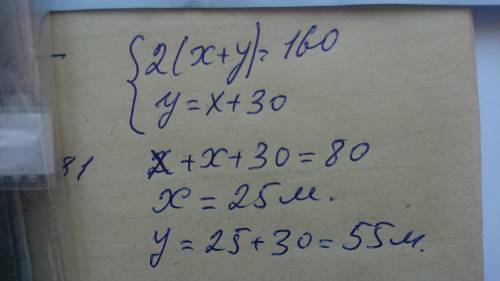 {2(x+y)=160
{y=x+30
x+x+30=80
x=25м.
y=25+30=55м.
81